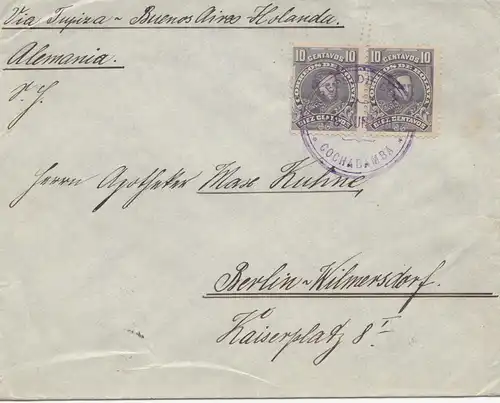 Via Tupiza - Buenos Aires Holanda.
Alemania.
10 CENTAVOS 10
CORREOS DE BOLIVIA
DIEZ CENTAVOS
10 CENTAVOS 10
CORREOS DE BOLIVIA
DIEZ CENTAVOS
COCHABAMBA
Herrn Apotheker Max Kuhne,
Berlin-Wilmersdorf.
Kaiserplatz 8 I